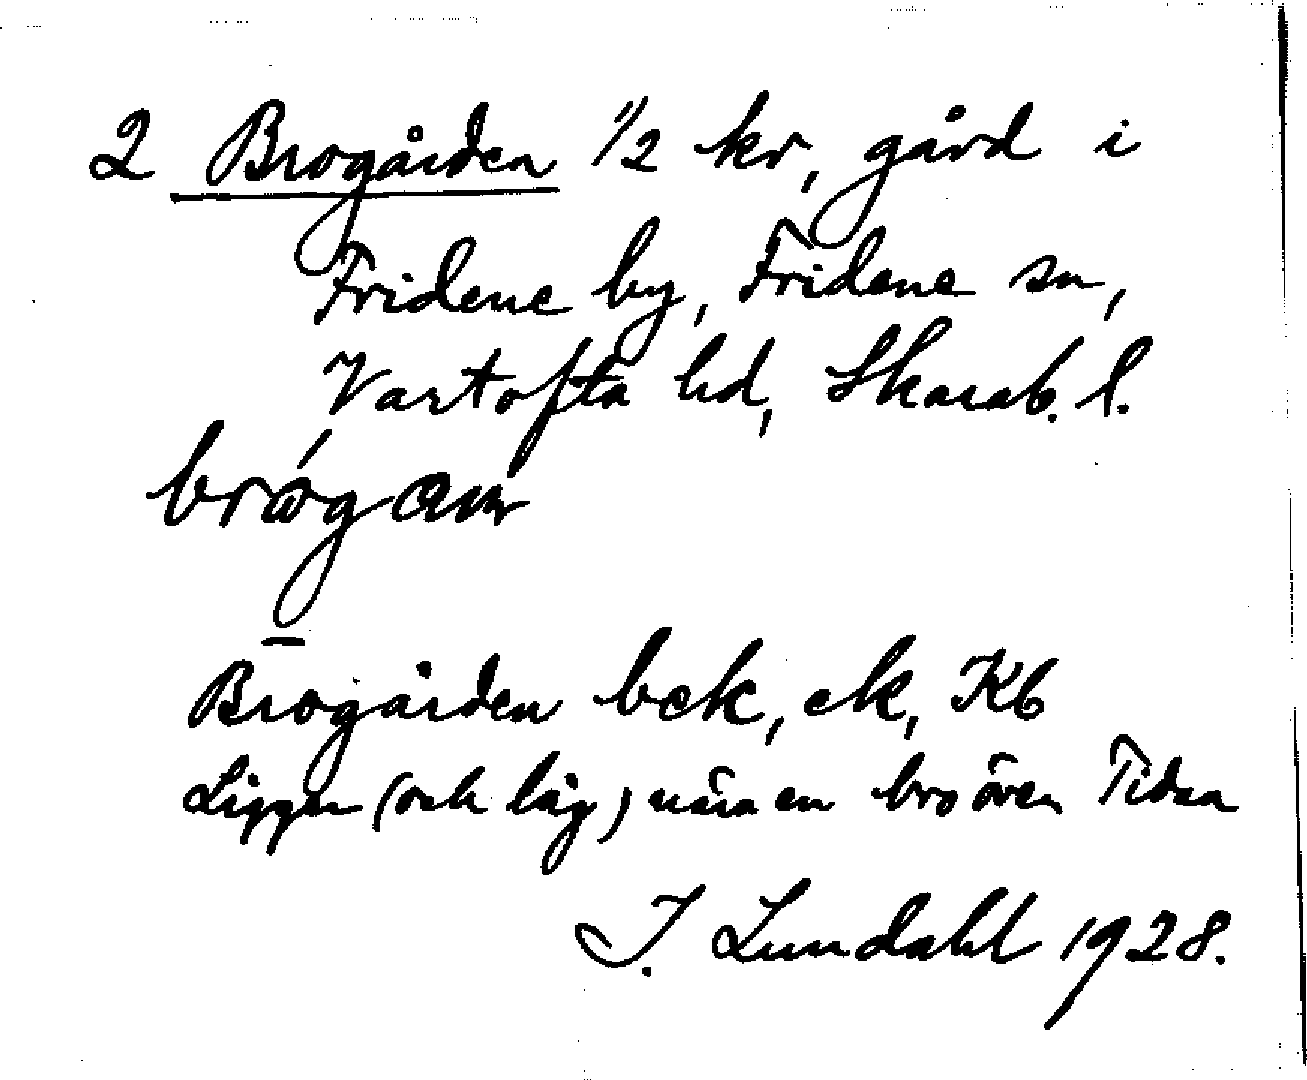 2 Brogården 1/2 kr, gård i
Fridene by, Fridene sn,
Vartofta hd, Skarab. l.
Brogården bek, ek, Kb
Ligger (och låg) nära en bro över Tidan
I. Lundahl 1928.